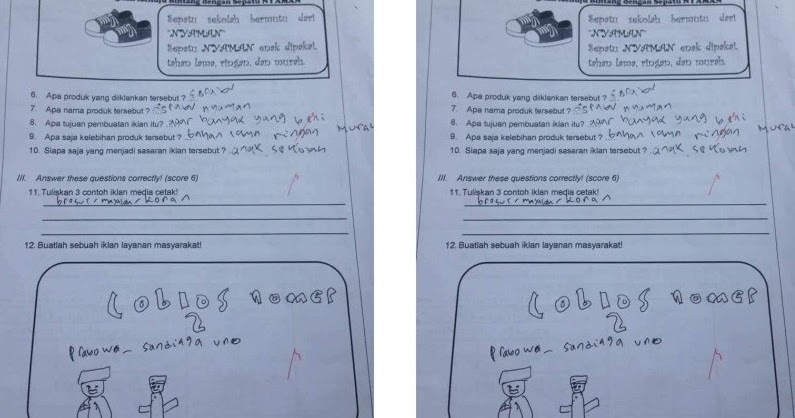 Bintang dengan Sepatu NYAMAN
Sepatu sekolah bermutu dari
"NYAMAN"
Sepatu NYAMAN enak dipakai,
tahan lama, ringan, dan murah.
6. Apa produk yang diiklankan tersebut ? Sepatu
7. Apa nama produk tersebut ? Sepatu nyaman
8. Apa tujuan pembuatan iklan itu? agar banyak yang beli
9. Apa saja kelebihan produk tersebut ? tahan lama ringan murah
10. Siapa saja yang menjadi sasaran iklan tersebut ? anak sekolah
III. Answer these questions correctly! (score 6)
11. Tuliskan 3 contoh iklan media cetak!
brosur, majalah, koran
12. Buatlah sebuah iklan layanan masyarakat!
Coblos nomer
2
Prawowo - sandiaga uno
Bintang dengan Sepatu NYAMAN
Sepatu sekolah bermutu dari
"NYAMAN"
Sepatu NYAMAN enak dipakai,
tahan lama, ringan, dan murah.
6. Apa produk yang diiklankan tersebut ? Sepatu
7. Apa nama produk tersebut ? Sepatu nyaman
8. Apa tujuan pembuatan iklan itu? agar banyak yang beli
9. Apa saja kelebihan produk tersebut ? tahan lama ringan murah
10. Siapa saja yang menjadi sasaran iklan tersebut ? anak sekolah
III. Answer these questions correctly! (score 6)
11. Tuliskan 3 contoh iklan media cetak!
brosur, majalah, koran
12. Buatlah sebuah iklan layanan masyarakat!
Coblos nomer
2
Prawowo - sandiaga uno